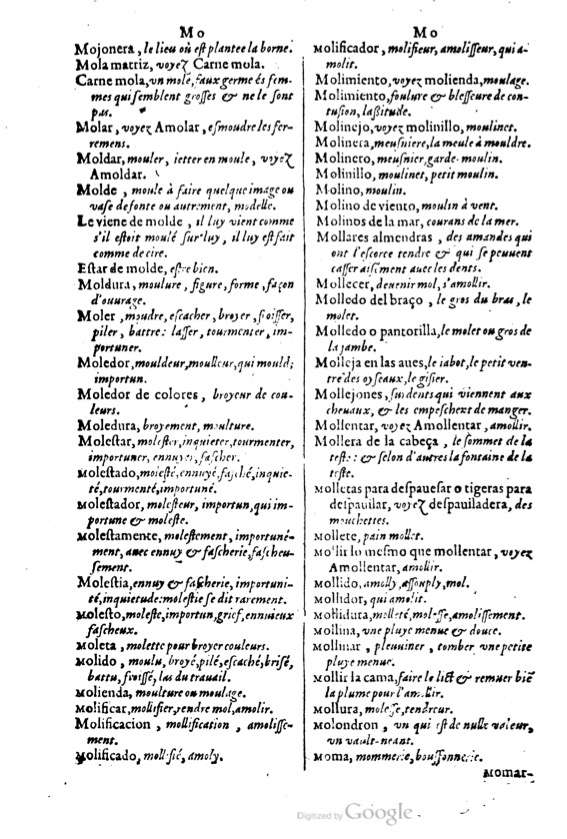 Mo
Mojonera, le lieu où est plantee la borne.
Mola matriz, voyez Carne mola.
Carne mola, vn molé, faux germe és fem-
mes qui semblent grosses & ne le sont
pas.
Molar, voyez Amolar, esmoudre les fer-
remens.
Moldar, mouler, ietter en moule, voyez
Amoldar.
Molde, moule à faire quelque image ou
vase de fonte ou autrement, modelle.
Le viene de molde, il luy vient comme
s'il estoit moulé sur luy, il luy est fait
comme de cire.
Estar de molde, estre bien.
Moldura, moulure, figure, forme, façon
d'ouurage.
Moler, moudre, escacher, broyer, froisser,
piler, battre: lasser, tourmenter, im-
portuner.
Moledor, mouldeur, moulleur, qui mould;
importun.
Moledor de colores, broyeur de cou-
leurs.
Moledura, broyement, moulture.
Molestar, molester, inquieter, tourmenter,
importuner, ennuyer, fascher.
Molestado, molesté, ennuyé, fasché, inquie-
té, tourmenté, importuné.
Molestador, molesteur, importun, qui im-
portune & moleste.
Molestamente, molestement, importuné-
ment, auec ennuy & fascherie, fascheu-
sement.
Molestia, ennuy & fascherie, importuni-
té, inquietude: molestie se dit rarement.
Molesto, moleste, importun, grief, ennuieux
fascheux.
Moleta, molette pour broyer couleurs.
Molido, moulu, broyé, pilé, escaché, brisé,
battu, froissé, las du trauail.
Molienda, moulture ou moulage.
Molificar, mollifier, rendre mol, amolir.
Molificacion, mollification, amolisse-
ment.
Molificado, mollifié, amoly.
Mo
Molificador, molifieur, amolisseur, qui a-
molit.
Molimiento, voyez molienda, moulage.
Molimiento, foulure & blesseure de con-
tusion, lassitude.
Molinejo, voyez molinillo, moulinet.
Molinera, meusniere, la meule à mouldre.
Molinero, meusnier, garde-moulin.
Molinillo, moulinet, petit moulin.
Molino, moulin.
Molino de viento, moulin à vent.
Molinos de la mar, courans de la mer.
Mollares almendras, des amandes qui
ont l'escorce tendre & qui se peuuent
casser aisément auec les dents.
Mollecer, deuenir mol, s'amollir.
Molledo del braço, le gros du bras, le
molet.
Molledo o pantorilla, le molet ou gros de
la jambe.
Molleja en las aues, le iabot, le petit ven-
tre des oyseaux, le gisier.
Mollejones, surdents qui viennent aux
cheuaux, & les empeschent de manger.
Mollentar, voyez Amollentar, amollir.
Mollera de la cabeça, le sommet de la
teste: & selon d'autres la fontaine de la
teste.
Molletas para despauesar o tigeras para
despauilar, voyez despauiladera, des
mouchettes.
Mollete, pain mollet.
Mollir lo mesmo que mollentar, voyez
Amollentar, amollir.
Mollido, amolly, assouply, mol.
Mollidor, qui amolit.
Mollidura, molleté, molesse, amolissement.
Mollina, vne pluye menue & douce.
Mollinar, pleuuiner, tomber vne petite
pluye menue.
Mollir la cama, faire le lict & remuer biē
la plume pour l'amollir.
Mollura, molesse, tendreur.
Molondron, vn qui est de nulle valeur,
vn vault-neant.
Moma, mommerie, bouffonnerie.
Momar-
Digitized by Google